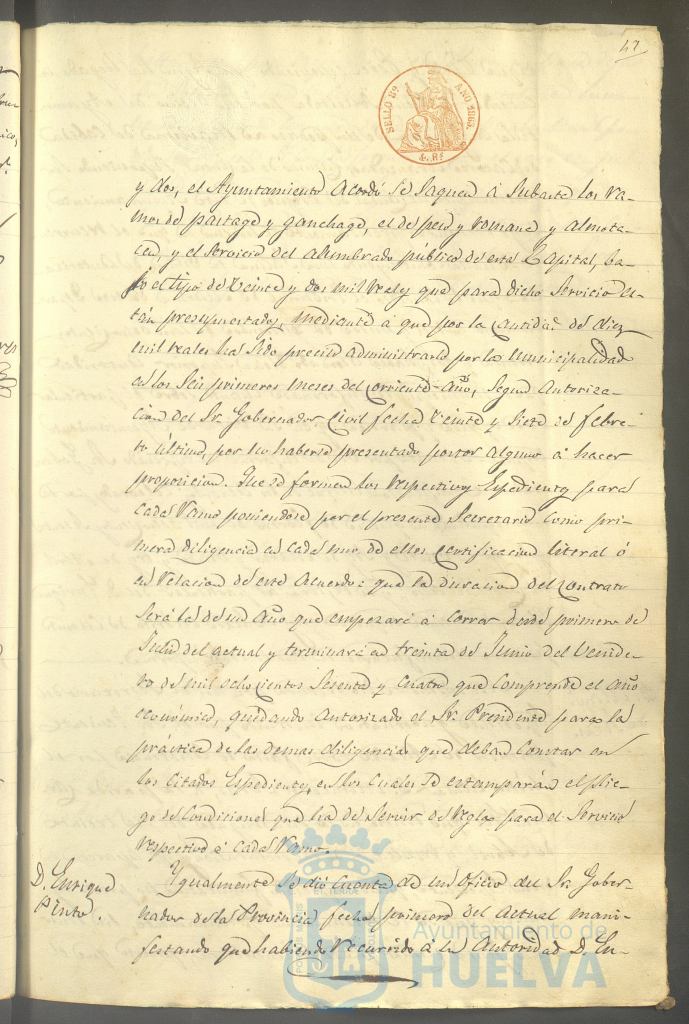 47
SELLO 8º AÑO 1863.
4. Rs.
y dos, el Ayuntamiento acordó se saquen á Subasta los ra-
mos de pastage y ganchage, el de peso y romana y almota-
cen, y el servicio del alumbrado público de esta Capital, ba-
jo el tipo de veinte y dos mil reales que para dicho servicio es-
tán presupuestados, mediante á que por la Cantidad de diez
mil reales ha sido preciso administrarlo por la Municipalidad
en los seis primeros meses del corriente año, segun autoriza-
cion del Sr. Gobernador Civil fecha veinte y siete de febre-
ro último, por no haberse presentado postor alguno á hacer
proposicion. Que se formen los respectivos Espedientes para
cada ramo poniendose por el presente Secretario como pri-
mera diligencia en cada uno de ellos certificacion literal ó
en relacion de este acuerdo: que la duracion del Contrato
será la de un año que empezará á correr desde primero de
Julio del actual y terminará en treinta de Junio del venide-
ro de mil ochocientos sesenta y cuatro que comprende el año
económico, quedando autorizado el Sr. Presidente para la
práctica de las demas diligencias que deban constar en
los citados Espedientes, en los cuales se estamparán el plie-
go de condiciones que ha de servir de regla para el servicio
respectivo á cada ramo.
D. Enrique
Pinto.
Ygualmente se dió cuenta de un oficio del Sr. Gober-
nador de la Provincia fecha primero del actual mani-
festando que habiendo recurrido á su autoridad D. En-
Ayuntamiento de
HUELVA